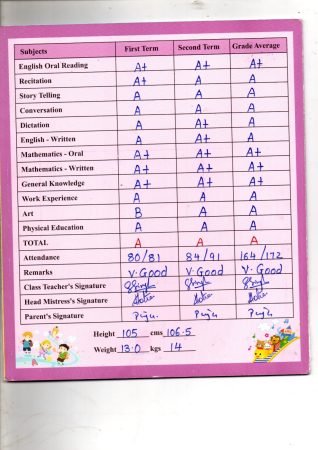 Subjects First Term Second Term Grade Average
English Oral Reading A+ A+ A+
Recitation A+ A A
Story Telling A A A
Conversation A A A
Dictation A A+ A
English - Written A A+ A
Mathematics - Oral A+ A+ A+
Mathematics - Written A+ A+ A+
General Knowledge A+ A+ A+
Work Experience A A A
Art B A A
Physical Education A A A
TOTAL A A A
Attendance 80/81 84/91 164/172
Remarks V. Good V. Good V. Good
Class Teacher's Signature
Head Mistress's Signature
Parent's Signature
Height 105 cms 106.5
Weight 13.0 kgs 14